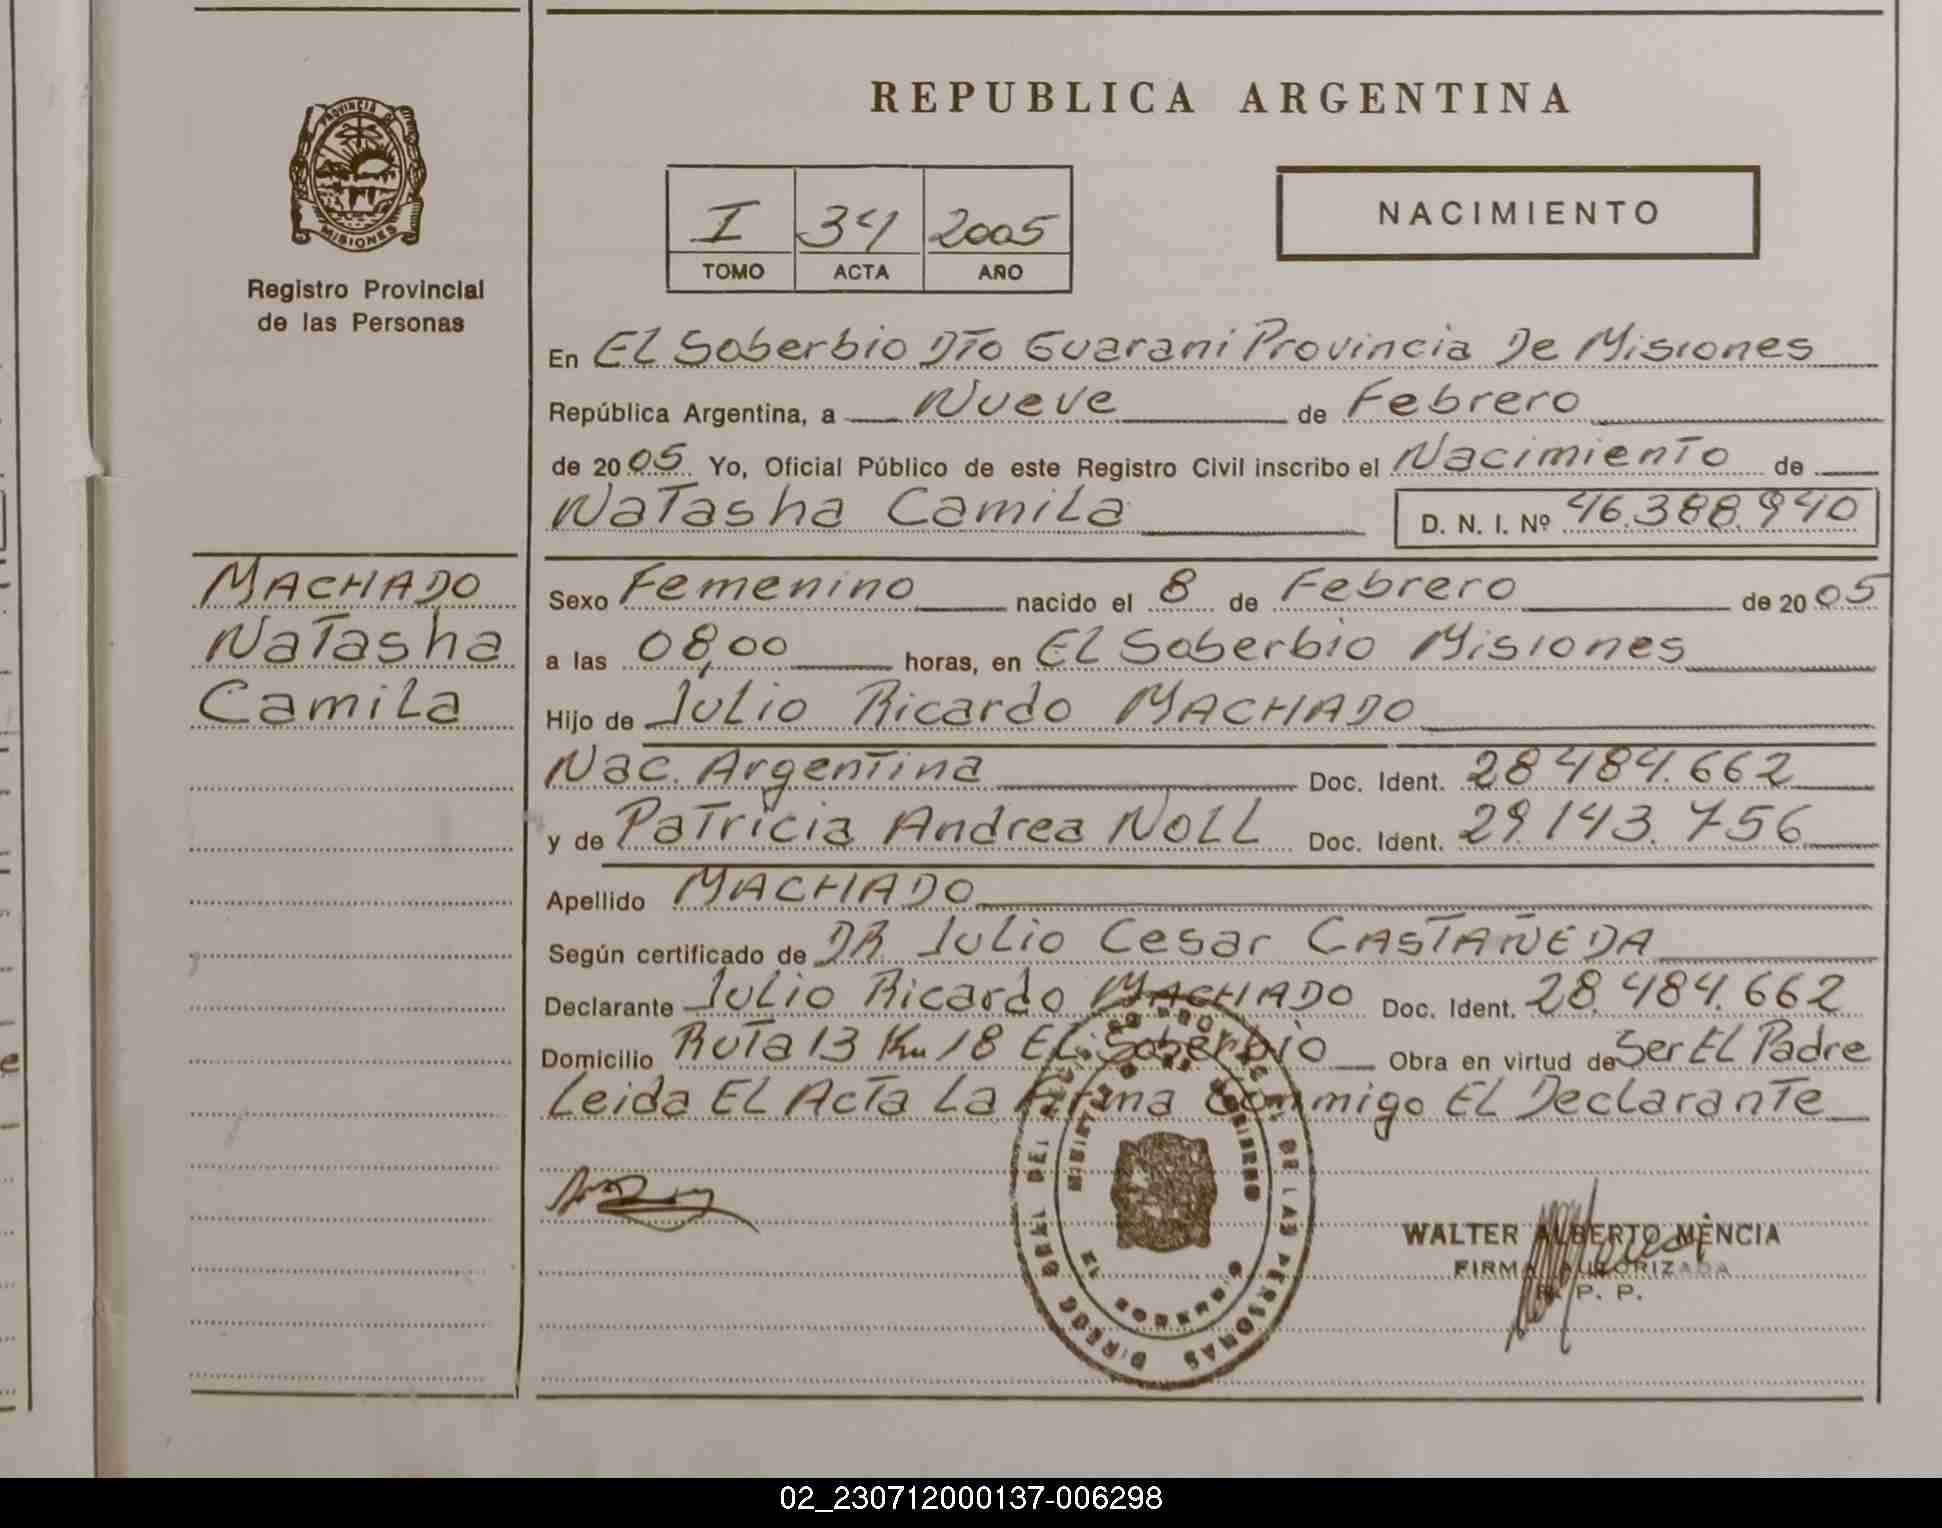 REPUBLICA ARGENTINA
PROVINCIA DE
MISIONES
Registro Provincial
de las Personas
I 34 2005
TOMO ACTA AÑO
NACIMIENTO
En El Soberbio Dto Guarani Provincia De Misiones
República Argentina, a Nueve de Febrero
de 2005 Yo, Oficial Público de este Registro Civil inscribo el Nacimiento de
Natasha Camila D. N. I. Nº 46.388.940
MACHADO
Natasha
Camila
Sexo Femenino nacido el 8 de Febrero de 2005
a las 08,00 horas, en El Soberbio Misiones
Hijo de Julio Ricardo MACHADO
Nac. Argentina Doc. Ident. 28.484.662
y de Patricia Andrea NOLL Doc. Ident. 29.143.756
Apellido MACHADO
Según certificado de DR. Julio Cesar CASTAÑEDA
Declarante Julio Ricardo MACHADO Doc. Ident. 28.484.662
Domicilio Ruta 13 Km 18 El Soberbio Obra en virtud de Ser El Padre
Leida El Acta La Firma Conmigo El Declarante
DE LAS PERSONAS
EL SOBERBIO
WALTER ALBERTO MENCIA
FIRMA AUTORIZADA
R. P. P.
02_230712000137-006298